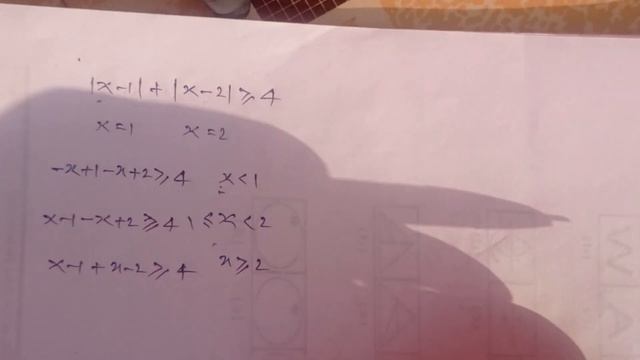 |x-1| + |x-2| ≥ 4
x=1 x=2
-x+1-x+2 ≥ 4 x<1
x-1-x+2 ≥ 4 1 ≤ x < 2
x-1+x-2 ≥ 4 x ≥ 2